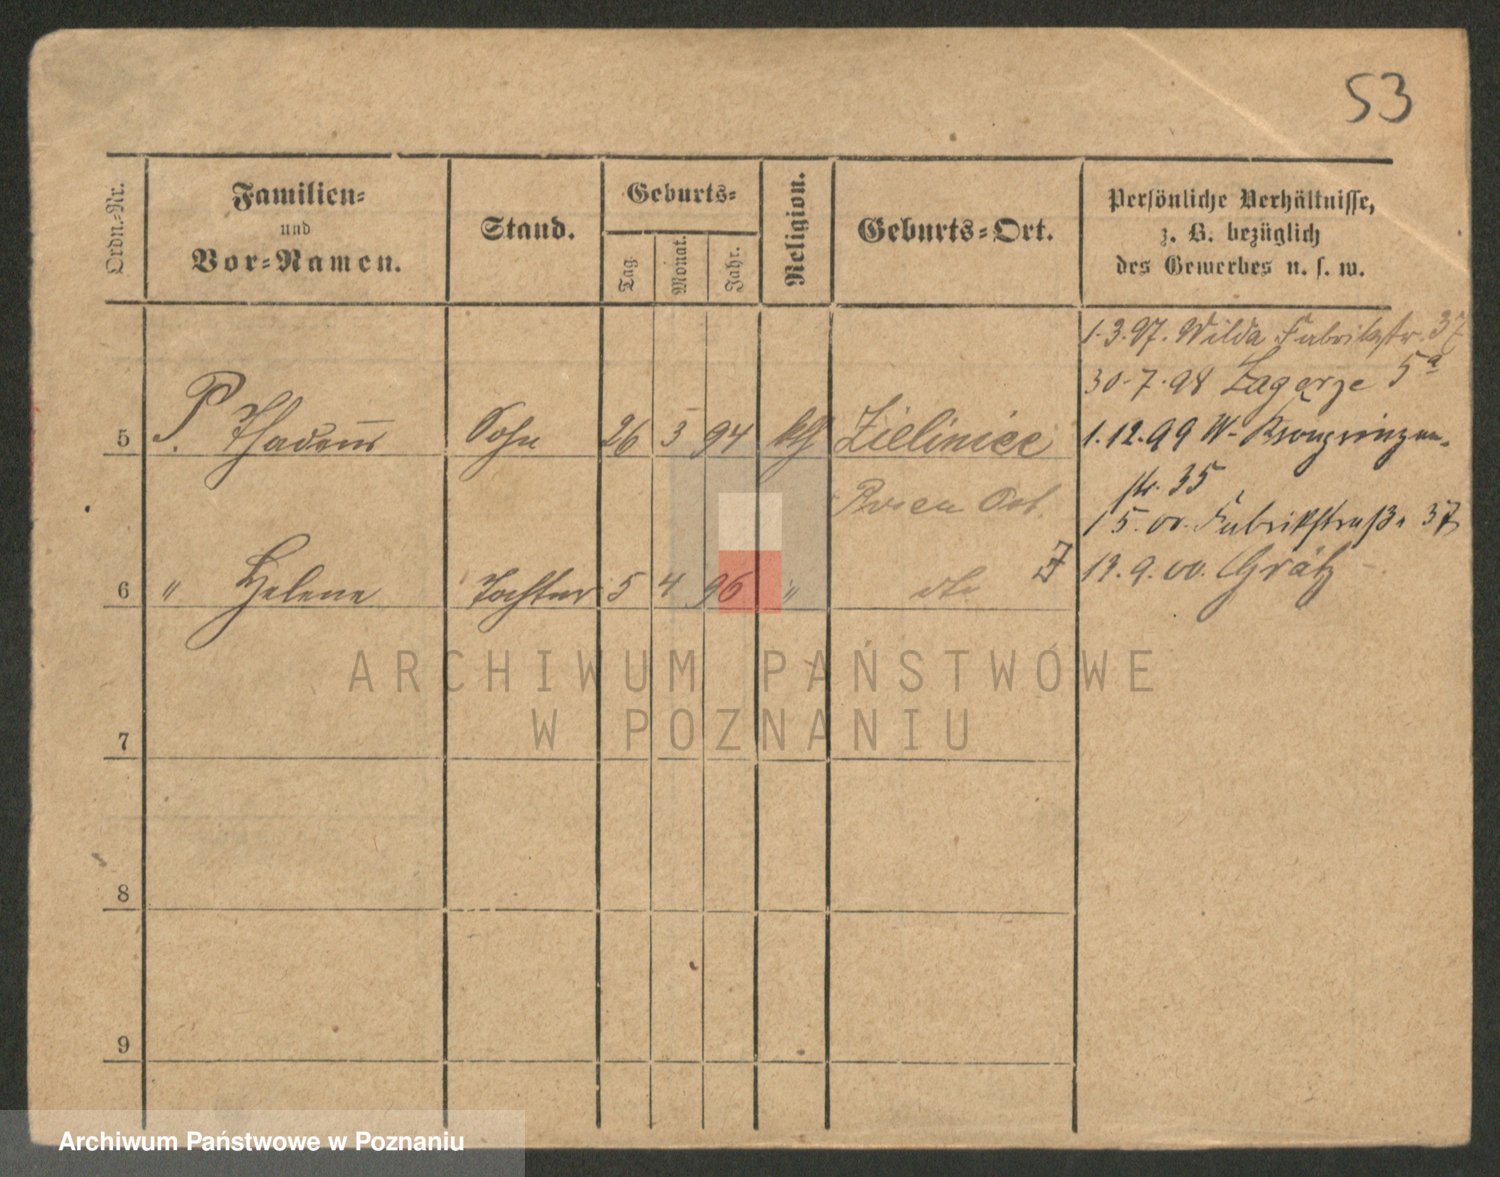 53
Ordn.-Nr.
Familien-
und
Vor-Namen.
Stand.
Geburts-
Tag.
Monat.
Jahr.
Religion.
Geburts-Ort.
Persönliche Verhältnisse,
z. B. bezüglich
des Gewerbes u. s. w.
1.3.97. Wilda Fabrikstr. 37
30.7.98 Zagorze 5a
5 P. Thadeus Sohn 26 3 94 kth Zieliniec
1.12.99 W- Kronprinzen-
str. 35
Kreis Ost.
1 5. 00. Fabrikstraße 37
6 " Helene Tochter 5 4 96 " dto.
19.9.00. Grätz
7
8
9
ARCHIWUM PAŃSTWOWE
W POZNANIU
Archiwum Państwowe w Poznaniu